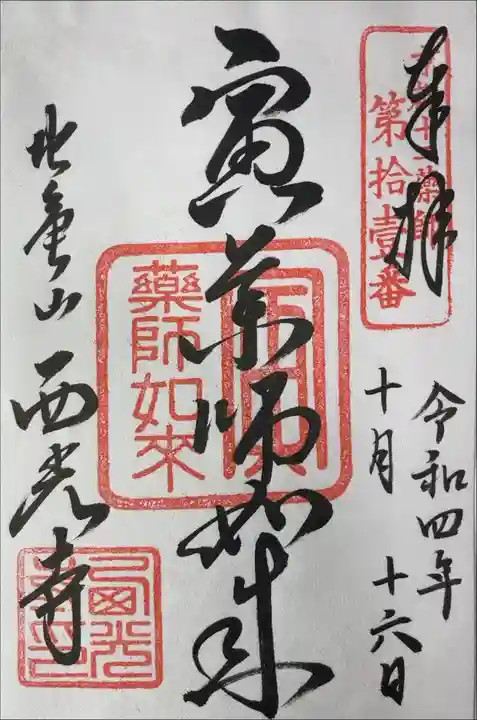 奉拝
十二薬師
第拾壹番
令和四年
十月十六日
寅薬師如来
藥師如來
北量山
西光寺